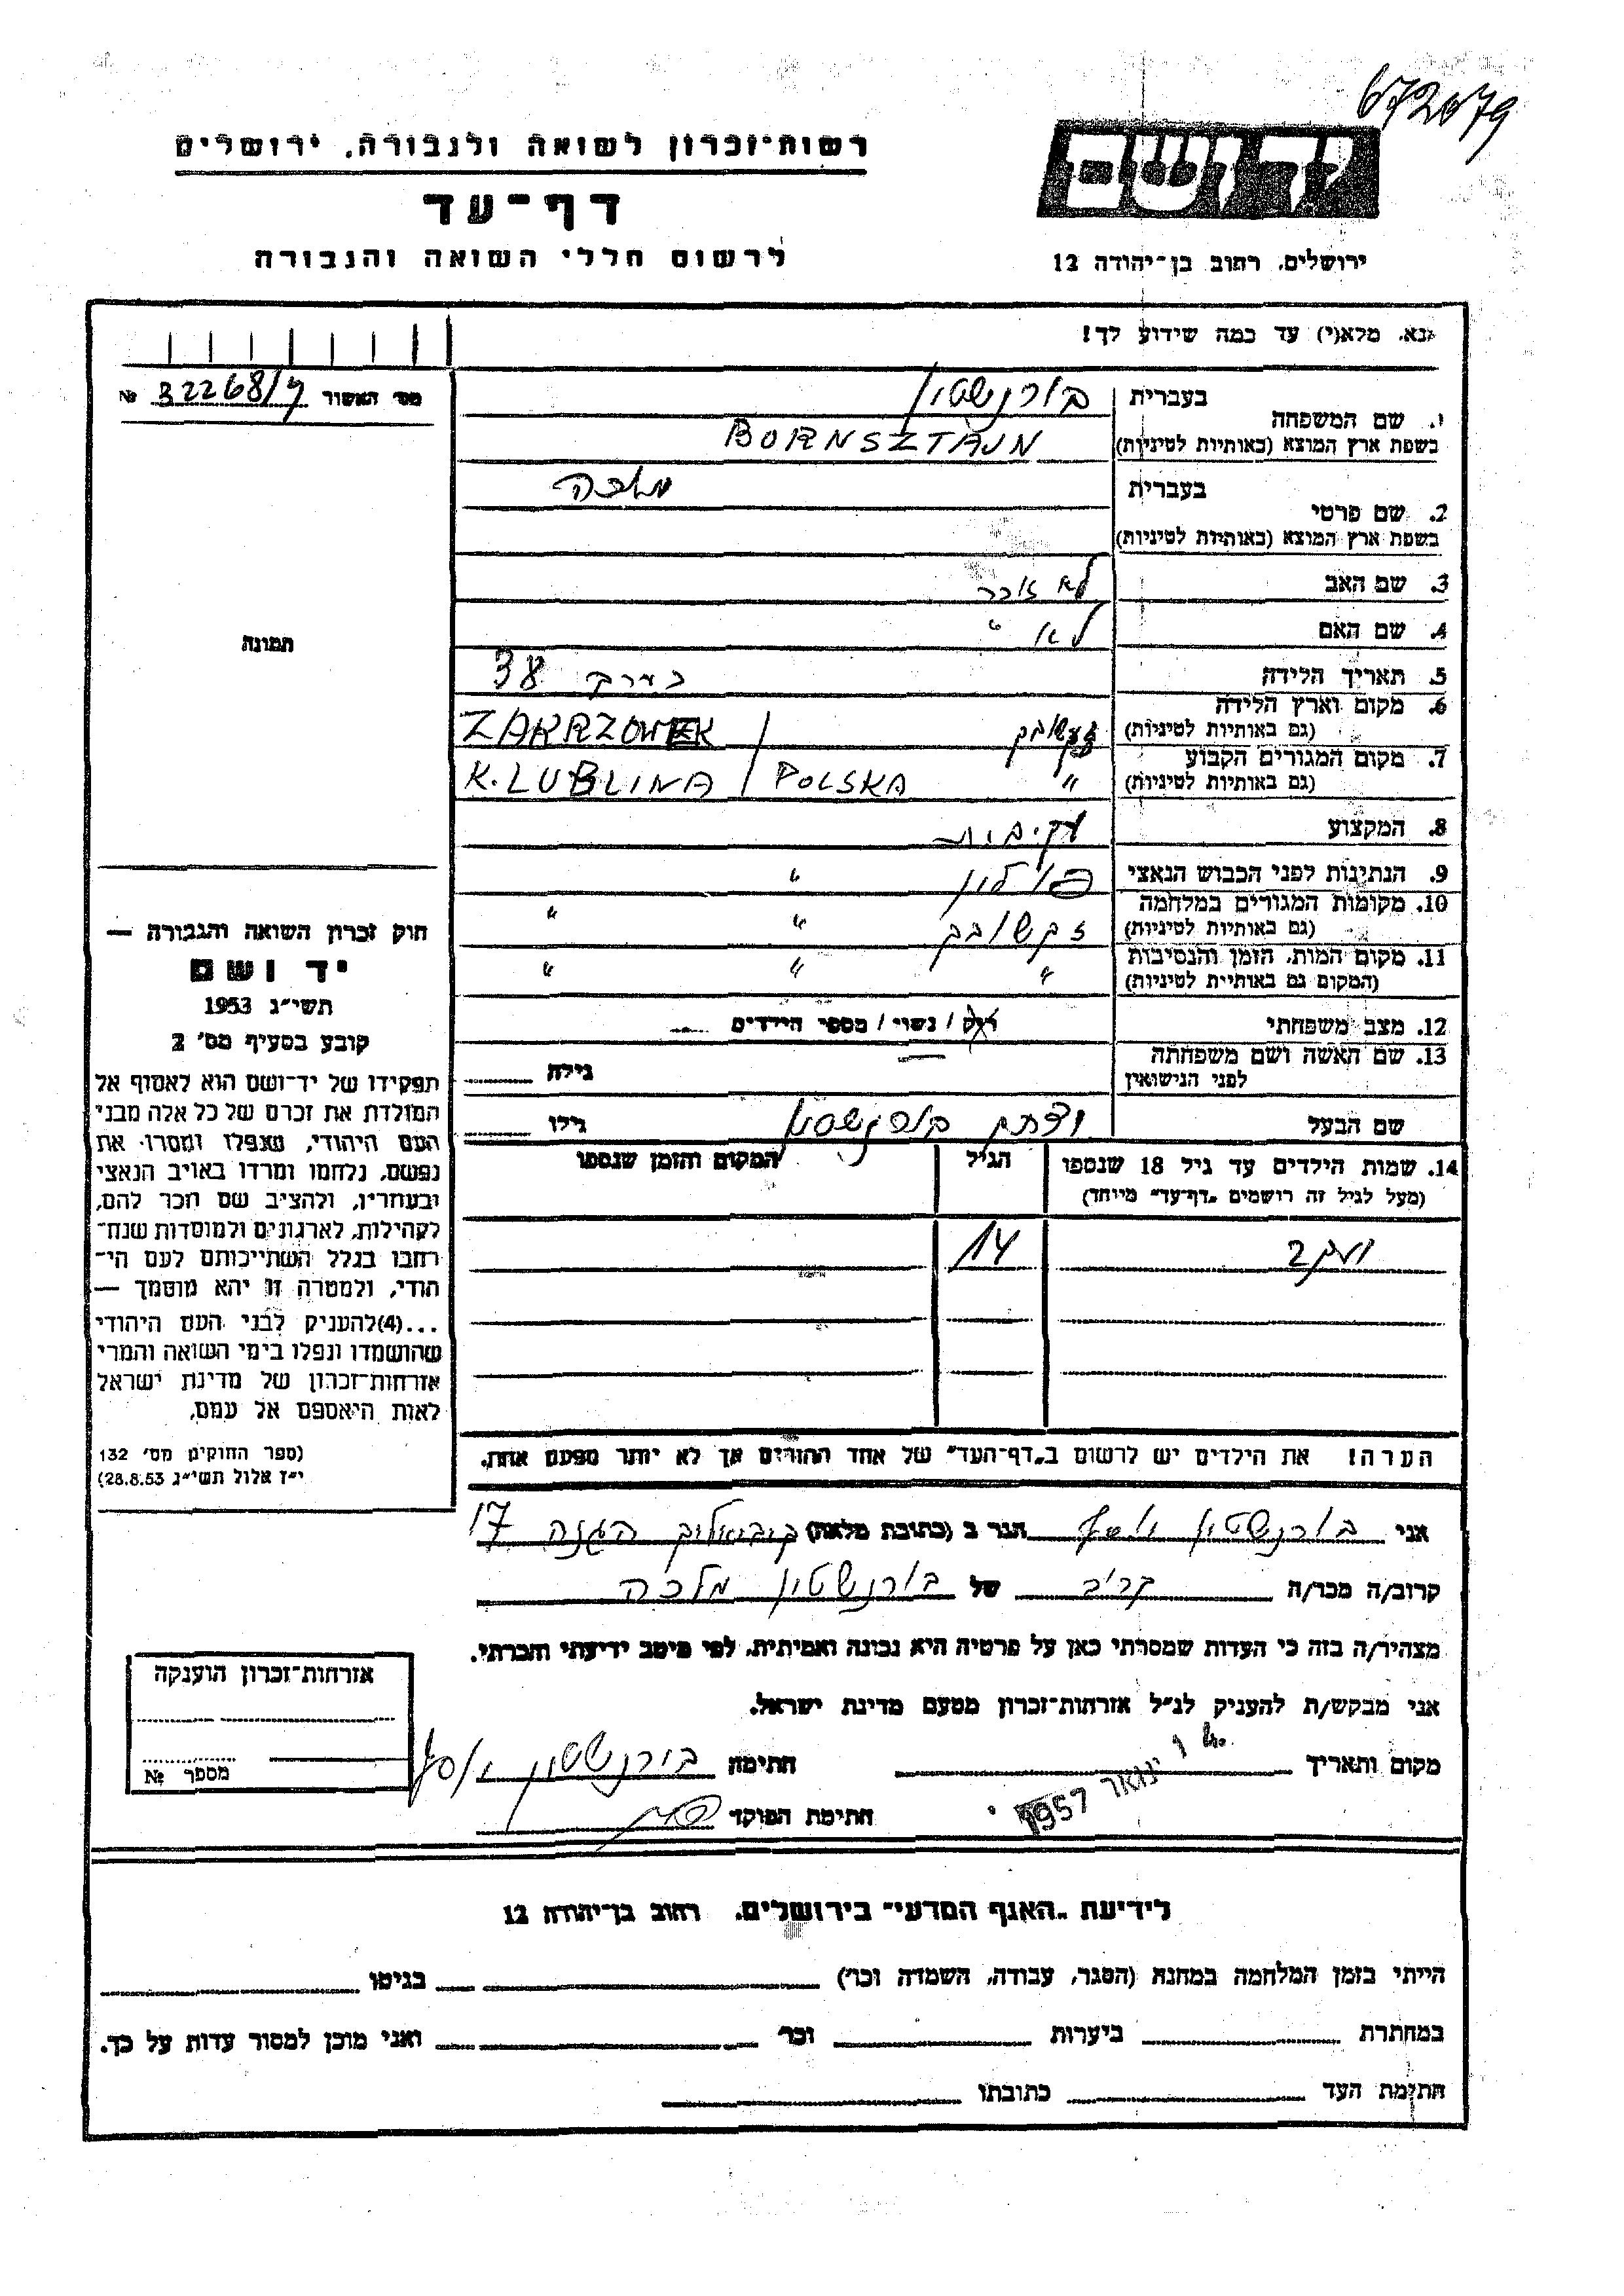 672079
רשות־זכרון לשואה ולגבורה, ירושלים
דף־עד
לרשום חללי השואה והגבורה
יד ושם
ירושלים, רחוב בן־יהודה 12
נא. מלא(י) עד כמה שידוע לך!
מס׳ האשור № 32268/7
1. שם המשפחה בעברית בורנשטין
בשפת ארץ המוצא (באותיות לטיניות) BORNSZTAJN
2. שם פרטי בעברית מלכה
בשפת ארץ המוצא (באותיות לטיניות)
3. שם האב לא זוכר
4. שם האם לא "
5. תאריך הלידה בערך 38
6. מקום וארץ הלידה ZAKRZOWEK
(גם באותיות לטיניות)
7. מקום המגורים הקבוע " K. LUBLINA / POLSKA
(גם באותיות לטיניות)
8. המקצוע
9. הנתינות לפני הכבוש הנאצי פולין "
10. מקומות המגורים במלחמה " "
(גם באותיות לטיניות)
11. מקום המות, הזמן והנסיבות " " "
(המקום גם באותיית לטיניות)
12. מצב משפחתי רווק / נשוי / מספר הילדים
13. שם האשה ושם משפחתה לפני הנישואין גילה
שם הבעל בורנשטין גילו
14. שמות הילדים עד גיל 18 שנספו הגיל המקום והזמן שנספו
(מעל לגיל זה רושמים "דף־עד" מיוחד)
יעקב 14
הערה! את הילדים יש לרשום ב"דף־העד" של אחד ההורים אך לא יותר מפעם אחת.
תמונה
חוק זכרון השואה והגבורה —
יד ושם
תשי״ג 1953
קובע בסעיף מס׳ 2
תפקידו של יד־ושם הוא לאסוף אל
המולדת את זכרם של כל אלה מבני
העם היהודי, שנפלו ומסרו את
נפשם, נלחמו ומרדו באויב הנאצי
ובעוזריו, ולהציב שם וזכר להם,
לקהילות, לארגונים ולמוסדות שנח־
רבו בגלל השתייכותם לעם הי־
הודי, ולמטרה זו יהא מוסמך —
...(4)להעניק לבני העם היהודי
שהושמדו ונפלו בימי השואה והמרי
אזרחות־זכרון של מדינת ישראל
לאות היאספם אל עמם.
(ספר החוקים מס׳ 132
י״ז אלול תשי״ג 28.8.53)
אני בורנשטין יוסף הגר ב (כתובת מלאה) הגנה 17
קרוב/ה מכר/ה קרוב של בורנשטין מלכה
מצהיר/ה בזה כי העדות שמסרתי כאן על פרטיה היא נכונה ואמיתית, לפי מיטב ידיעתי והכרתי.
אני מבקש/ת להעניק לנ״ל אזרחות־זכרון מטעם מדינת ישראל.
מקום ותאריך ינואר 1957 חתימה בורנשטין יוסף
חתימת הפוקד
אזרחות־זכרון הוענקה
מספר №
לידיעת "האגף המדעי" בירושלים, רחוב בן־יהודה 12
הייתי בזמן המלחמה במחנה (הסגר, עבודה, השמדה וכו׳) בגיטו
במחתרת ביערות וכו׳ ואני מוכן למסור עדות על כך.
חתימת העד כתובתו